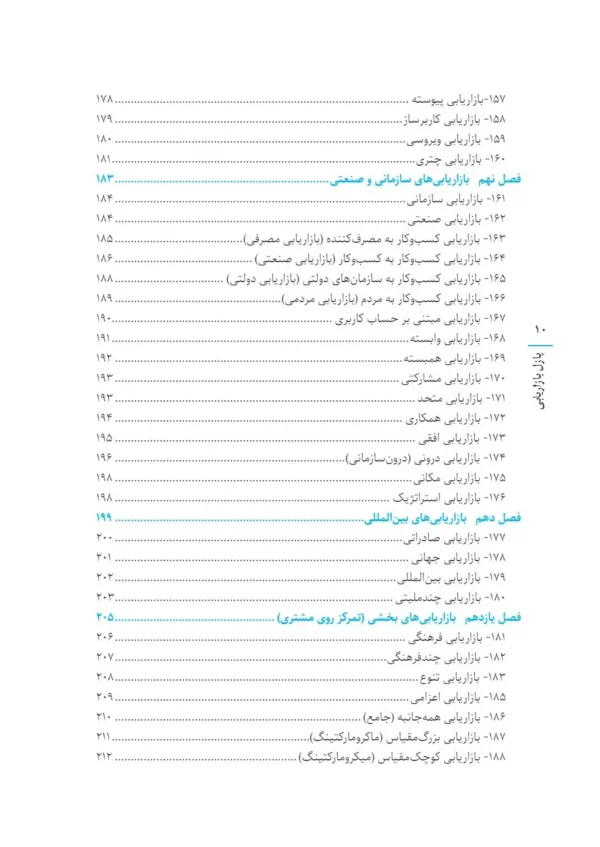 ۱۵۷-بازاریابی پیوسته ............ ۱۷۸
۱۵۸- بازاریابی کاربرساز ............ ۱۷۹
۱۵۹- بازاریابی ویروسی ............ ۱۸۰
۱۶۰- بازاریابی چتری ............ ۱۸۱
فصل نهم بازاریابی‌های سازمانی و صنعتی ............ ۱۸۳
۱۶۱- بازاریابی سازمانی ............ ۱۸۴
۱۶۲- بازاریابی صنعتی ............ ۱۸۴
۱۶۳- بازاریابی کسب‌وکار به مصرف‌کننده (بازاریابی مصرفی) ............ ۱۸۵
۱۶۴- بازاریابی کسب‌وکار به کسب‌وکار (بازاریابی صنعتی) ............ ۱۸۶
۱۶۵- بازاریابی کسب‌وکار به سازمان‌های دولتی (بازاریابی دولتی) ............ ۱۸۸
۱۶۶- بازاریابی کسب‌وکار به مردم (بازاریابی مردمی) ............ ۱۸۹
۱۶۷- بازاریابی مبتنی بر حساب کاربری ............ ۱۹۰
۱۶۸- بازاریابی وابسته ............ ۱۹۱
۱۶۹- بازاریابی همبسته ............ ۱۹۲
۱۷۰- بازاریابی مشارکتی ............ ۱۹۳
۱۷۱- بازاریابی متحد ............ ۱۹۳
۱۷۲- بازاریابی همکاری ............ ۱۹۴
۱۷۳- بازاریابی افقی ............ ۱۹۵
۱۷۴- بازاریابی درونی (درون‌سازمانی) ............ ۱۹۶
۱۷۵- بازاریابی مکانی ............ ۱۹۸
۱۷۶- بازاریابی استراتژیک ............ ۱۹۸
فصل دهم بازاریابی‌های بین‌المللی ............ ۱۹۹
۱۷۷- بازاریابی صادراتی ............ ۲۰۰
۱۷۸- بازاریابی جهانی ............ ۲۰۱
۱۷۹- بازاریابی بین‌المللی ............ ۲۰۲
۱۸۰- بازاریابی چندملیتی ............ ۲۰۳
فصل یازدهم بازاریابی‌های بخشی (تمرکز روی مشتری) ............ ۲۰۵
۱۸۱- بازاریابی فرهنگی ............ ۲۰۶
۱۸۲- بازاریابی چندفرهنگی ............ ۲۰۷
۱۸۳- بازاریابی تنوع ............ ۲۰۸
۱۸۵- بازاریابی اعزامی ............ ۲۰۹
۱۸۶- بازاریابی همه‌جانبه (جامع) ............ ۲۱۰
۱۸۷- بازاریابی بزرگ‌مقیاس (ماکرومارکتینگ) ............ ۲۱۱
۱۸۸- بازاریابی کوچک‌مقیاس (میکرومارکتینگ) ............ ۲۱۲
۱۰
پازل بازاریابی